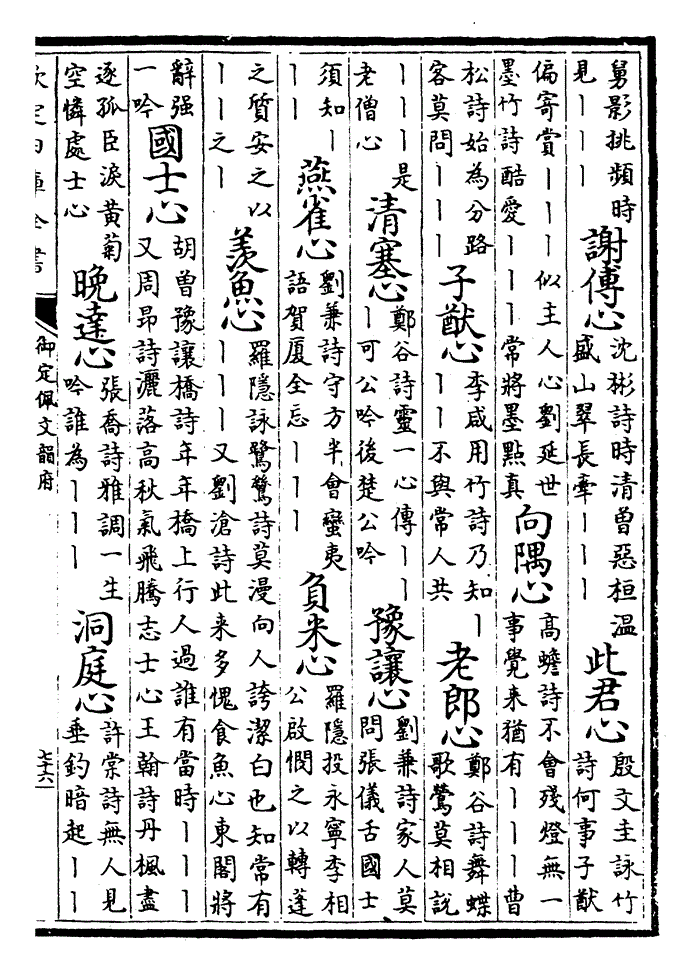 舅影挑頻時
見｜｜｜
謝傅心
沈彬詩時清曾惡桓溫
盛山翠長牽｜｜｜
此君心
殷文圭詠竹
詩何事子猷
偏寄賞｜｜｜似主人心劉延世
墨竹詩酷愛｜｜｜常將墨點真
向隅心
髙蟾詩不會殘燈無一
事覺来猶有｜｜｜曹
松詩始為分路
客莫問｜｜｜
子猷心
李咸用竹詩乃知｜
｜｜不與常人共
老郎心
鄭谷詩舞蝶
歌鶯莫相說
｜｜｜是
老僧心
清塞心
鄭谷詩靈一心傳｜｜
｜可公吟後楚公吟
豫讓心
劉兼詩家人莫
問張儀舌國士
須知｜
｜｜
燕雀心
劉兼詩守方半會蠻夷
語賀厦全忘｜｜｜
負米心
羅隱投永寧李相
公啟憫之以轉蓬
之質安之以
｜｜之｜
羨魚心
羅隱詠鷺鷥詩莫漫向人誇潔白也知常有
｜｜｜又劉滄詩此来多愧食魚心東閣將
辭强
一吟
國士心
胡曾豫讓橋詩年年橋上行人過誰有當時｜｜｜
又周昂詩灑落高秋氣飛騰志士心王翰詩丹楓盡
逐孤臣淚黄菊
空憐處士心
晚達心
張喬詩雅調一生
吟誰為｜｜｜
洞庭心
許棠詩無人見
垂釣暗起｜｜
欽定四庫全書
御定佩文韻府
七十六